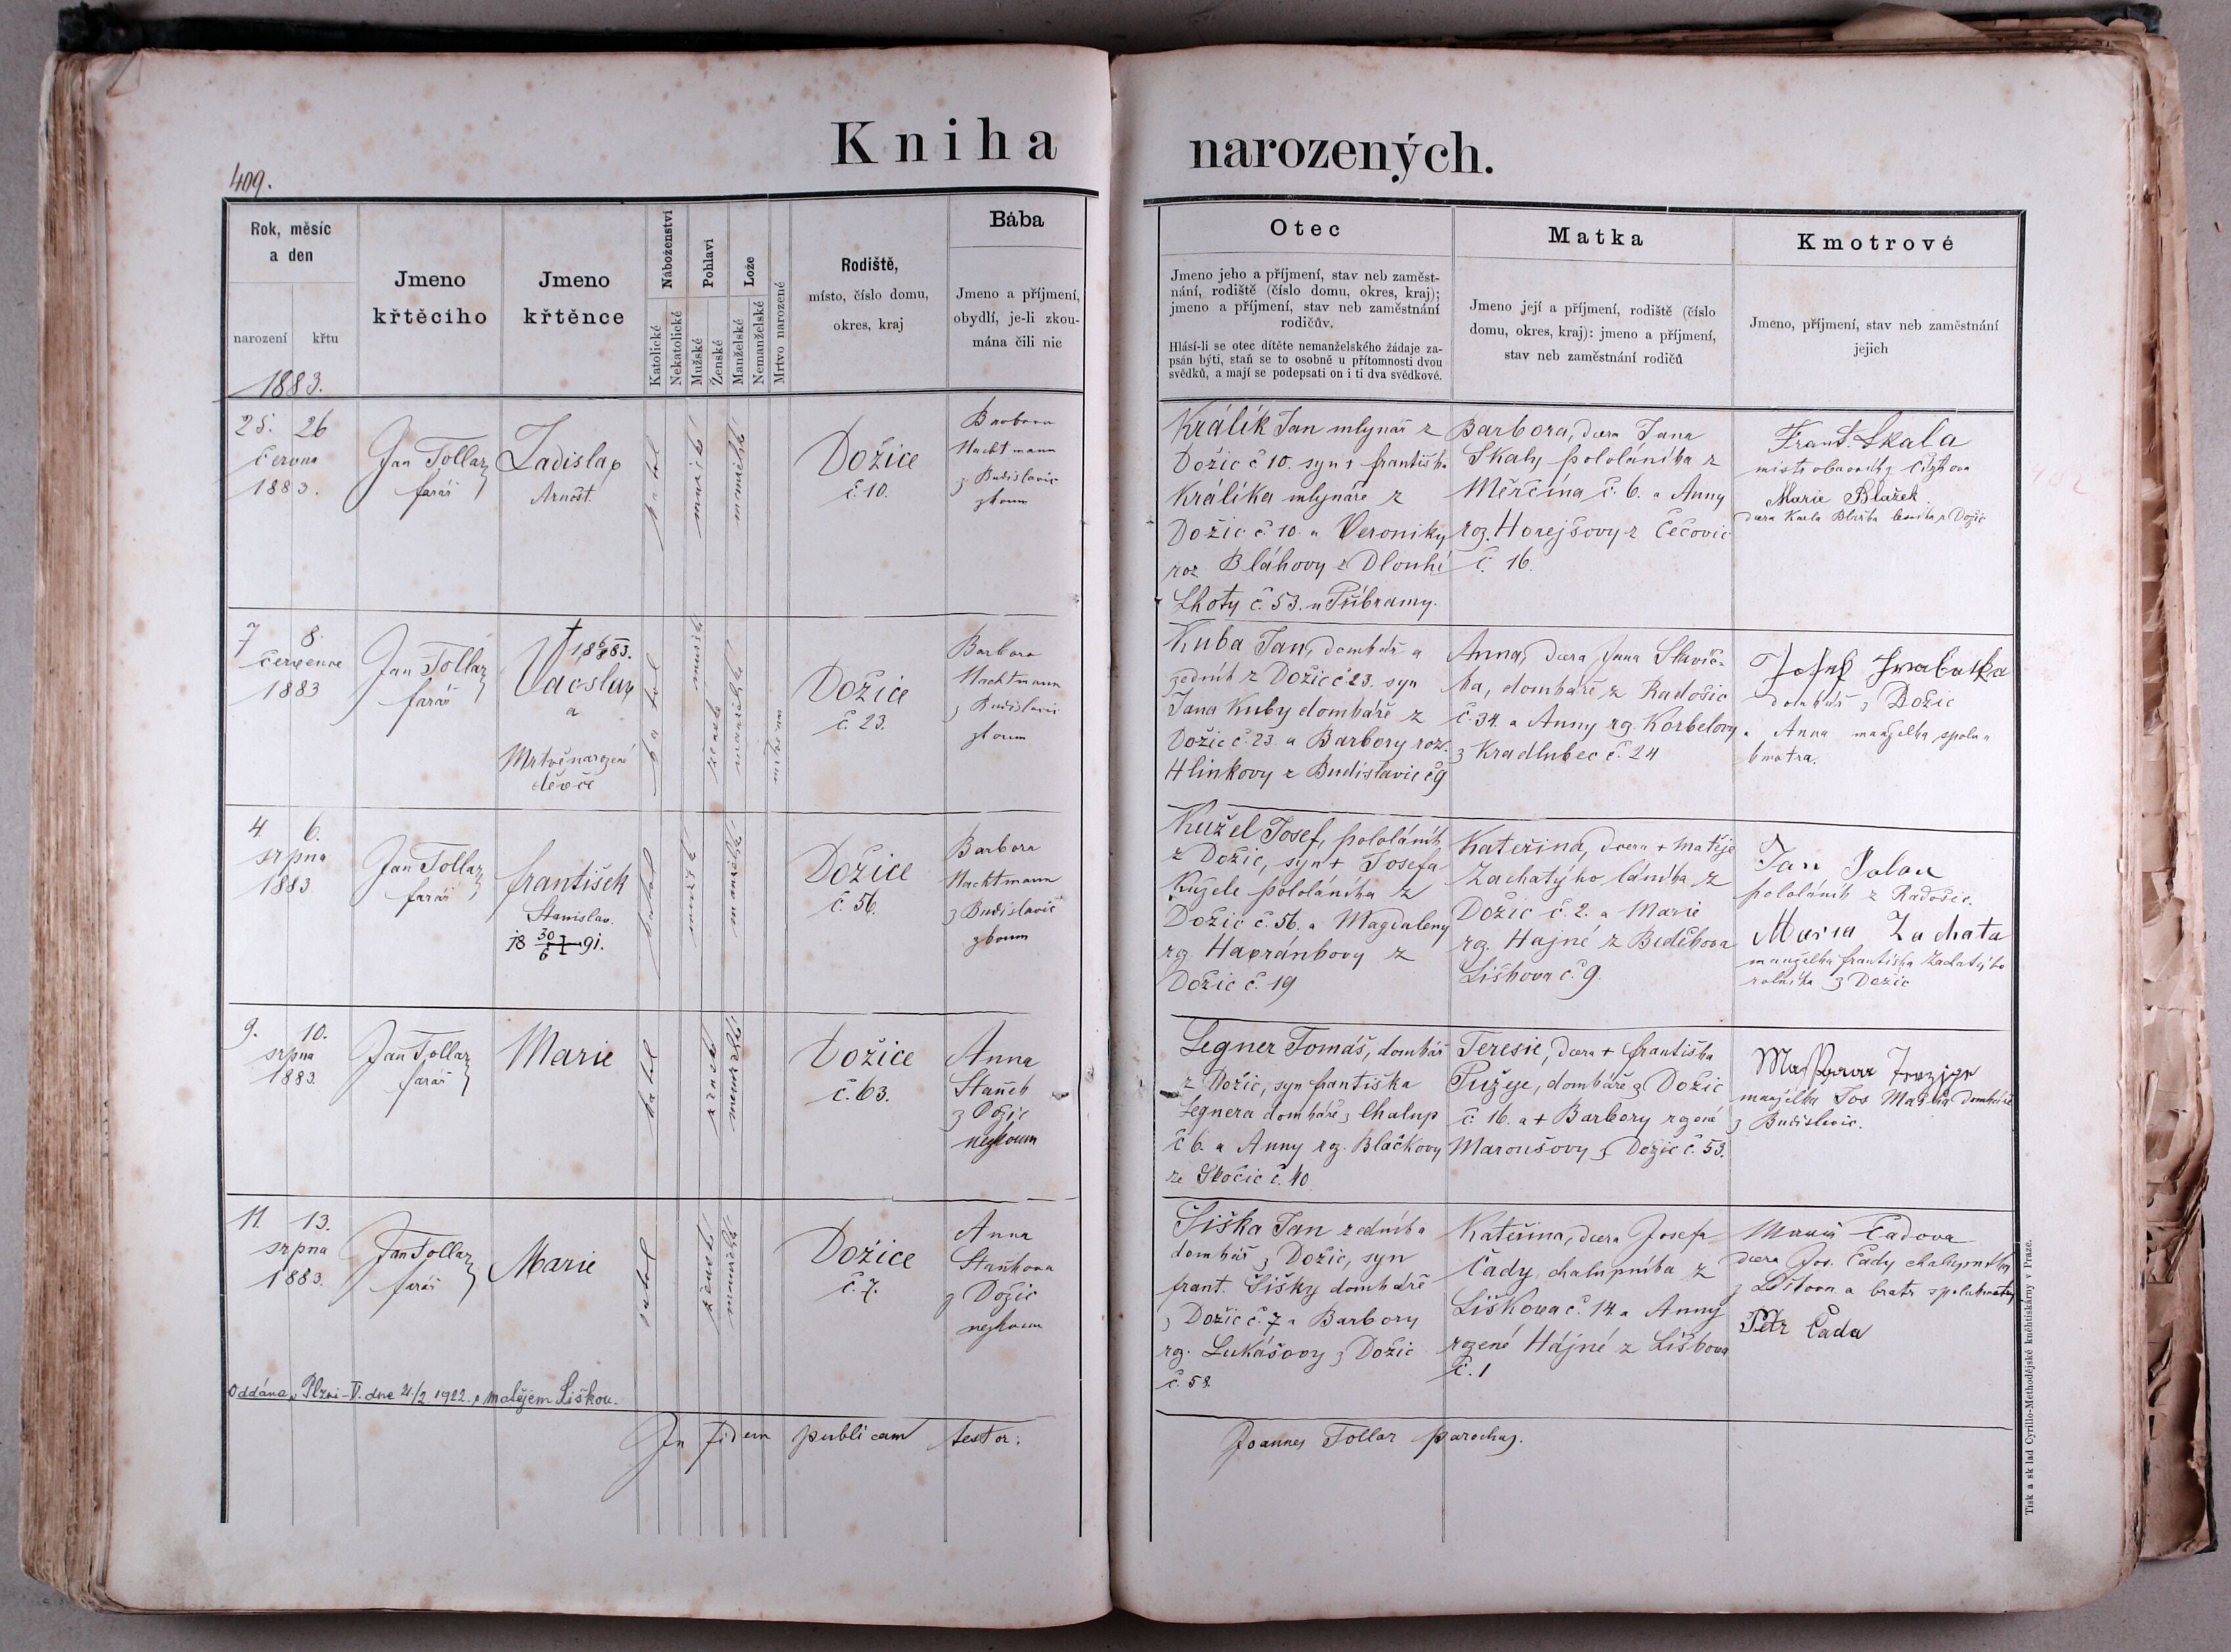 Kniha narozených.
409.
Rok, měsíc
a den
narození
křtu
1883.
Jmeno
křtěcího
Jmeno
křtěnce
Náboženství
Katolické
Nekatolické
Pohlaví
Mužské
Ženské
Lože
Manželské
Nemanželské
Mrtvo narozené
Rodiště,
místo, číslo domu,
okres, kraj
Bába
Jmeno a příjmení,
obydlí, je-li zkou-
mána čili nic
Otec
Jmeno jeho a příjmení, stav neb zaměst-
nání, rodiště (číslo domu, okres, kraj);
jmeno a příjmení, stav neb zaměstnání
rodičův.
Hlásí-li se otec dítěte nemanželského žádaje za-
psán býti, staň se to osobně u přítomnosti dvou
svědků, a mají se podepsati on i ti dva svědkové.
Matka
Jmeno její a příjmení, rodiště (číslo
domu, okres, kraj): jmeno a příjmení,
stav neb zaměstnání rodičů
Kmotrové
Jmeno, příjmení, stav neb zaměstnání
jejich
25. 26
června
1883.
Jan Tollar
farář
Ladislav
Arnošt.
katol
mužské
manželské
Dožice
č. 10.
Barbora
Nachtmann
z Budislavic
zkoum
Králík Jan mlynář z
Dožic č 10. syn + františka
Králíka mlynáře z
Dožic č. 10. a Veroniky
roz Bláhovy z Dlouhé
Lhoty č. 53. u Příbramy.
Barbora, dcera Jana
Skaly pololáníka z
Měrčína č. 6. a Anny
roz. Horejšovy z Čečovic
č. 16.
Frant. Skala
Marie Blažek
7 8.
července
1883
Jan Tollar
farář
Vácslav
a
Mrtvěnarozené
děvče
katol
mužské
ženské
manželské
Dožice
č. 23.
Barbora
Nachtmann
z Budislavic
zkoum
Kuba Jan, domkář a
zedník z Dožic č 23. syn
Jana Kuby domkáře z
Dožic č. 23. a Barbory roz.
Hlinkovy z Budislavic č 9
Anna, dcera Jana Slavíč-
ka, domkáře z Radošic
č. 34. a Anny rz. Korbelovy
z Kradlubec č. 24
domkář z Dožic
a Anna manželka spolu
kmotra.
4. 6.
srpna
1883
Jan Tollar
farář
františek
Stanislav.
katol
mužské
manželské
Dožice
č. 56.
Barbora
Nachtmann
z Budislavic
zkoum
Kužel Josef, pololáník
z Dožic, syn + Josefa
Kužele pololáníka z
Dožic č. 56. a Magdaleny
rz. Havránkovy z
Dožic č. 19
Kateřina, dcera + Matěje
Zachatýho láníka z
Dožic č. 2. a Marie
rz. Hajné z
Liškova č. 9.
pololáník z Radošic.
Maria Zachata
manželka františka Zachatýho
rolníka z Dožic
9. 10.
srpna
1883.
Jan Tollar
farář
Marie
katol
ženské
manželské
Dožice
č. 63.
Anna
Staněk
z Dožic
nezkoum
Legner Tomáš, domkář
z Dožic, syn františka
Legnera domkáře z Chalup
č 6. a Anny rz. Blačkovy
ze Skočic č. 40.
Teresie, dcera + františka
Pužeje, domkáře z Dožic
č. 16. a + Barbory rzené
Maroušovy z Dožic č. 53.
manželka Jos domkáře
z Budislavic.
11. 13.
srpna
1883.
Jan Tollar
farář
Marie
katol
ženské
manželské
Dožice
č. 7.
Anna
Staňkova
z Dožic
nezkoum
Šiška Jan zedníka
domkář z Dožic, syn
frant. Šišky domkáře
z Dožic č. 7 a Barbory
rz. Lukášovy z Dožic
č. 58.
Kateřina, dcera Josefa
Čady, chalupníka z
Liškova č. 14. a Anny
rzené Hájné z Liškova
č. 1
Marie Čadova
dcera Jos. Čady chalupníka
z Liškova a bratr
Petr Čada
Oddána v Plzni-V. dne 21/2 1922 s matějem Liškou.
In fidem publicam testor:
Joannes Tollar parochus.
Tisk a sklad Cyrillo-Methodějské kněhtiskárny v Praze.